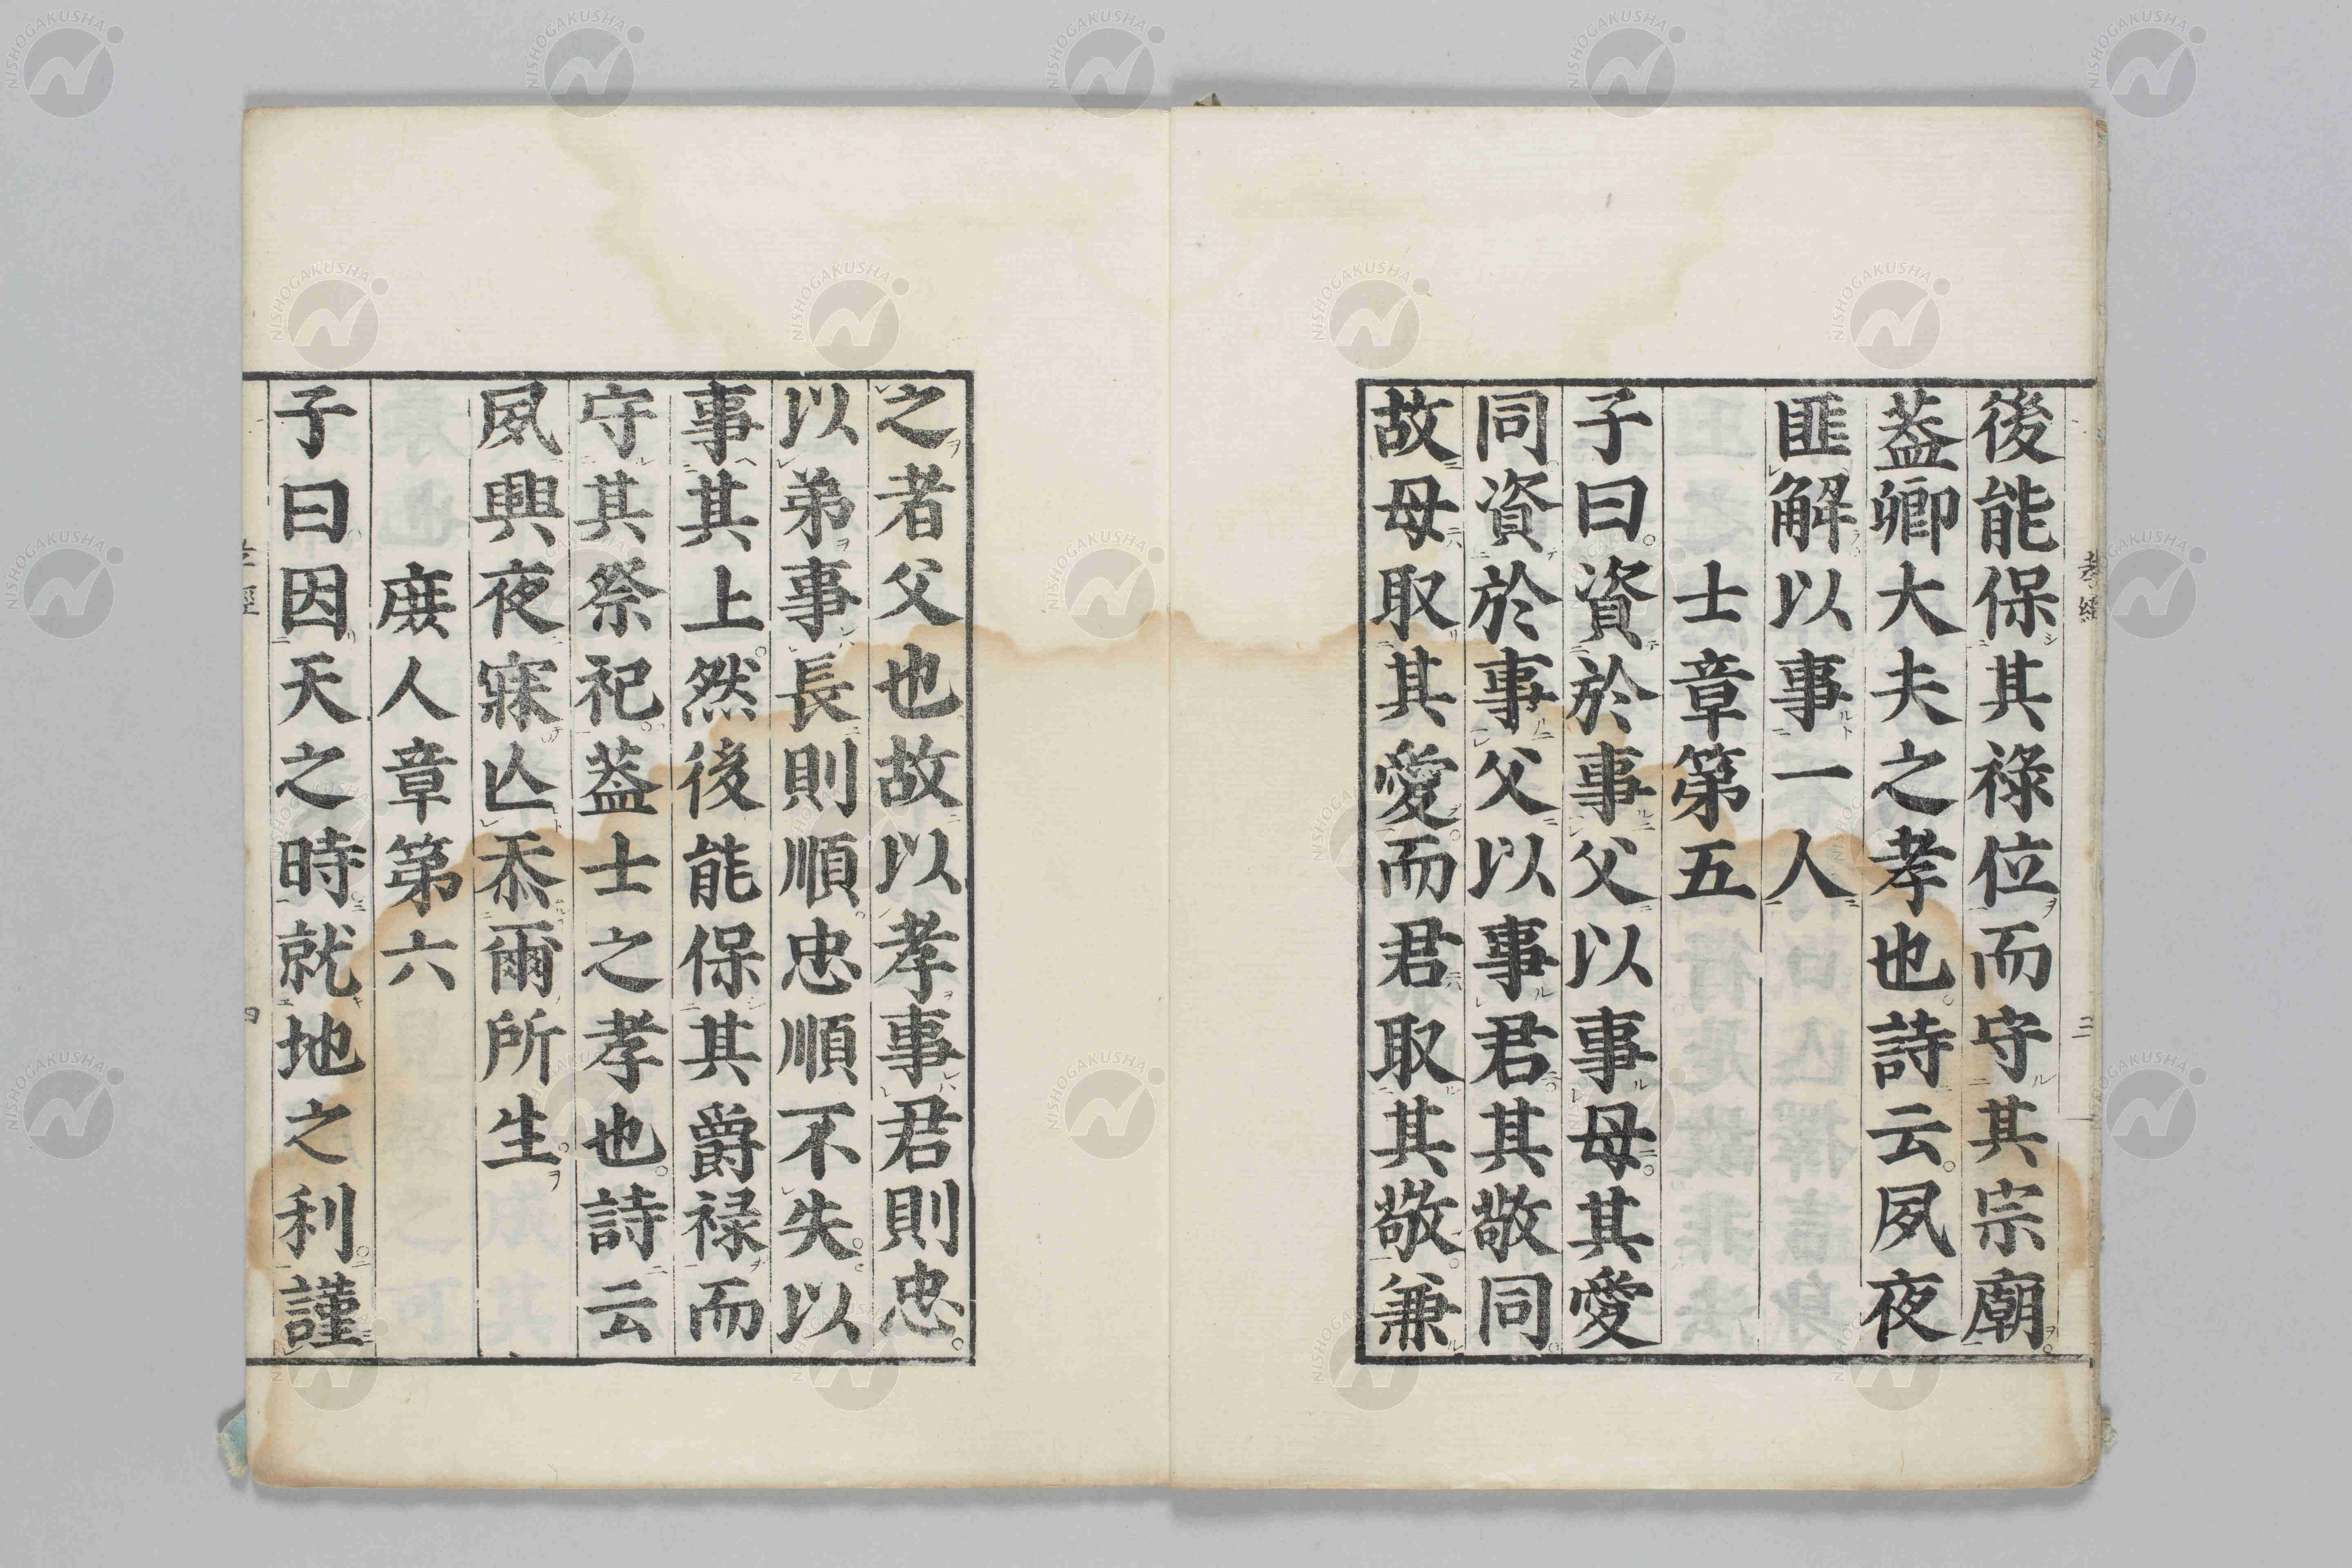 後能保其祿位而守其宗廟
蓋卿大夫之孝也詩云夙夜
匪解以事一人
士章第五
子曰資於事父以事母其愛
同資於事父以事君其敬同
故母取其愛而君取其敬兼
之者父也故以孝事君則忠
以弟事長則順忠順不失以
事其上然後能保其爵禄而
守其祭祀蓋士之孝也詩云
夙興夜寐亾忝爾所生
庻人章第六
子曰因天之時就地之利謹
孝經
三
四
NISHOGAKUSHA